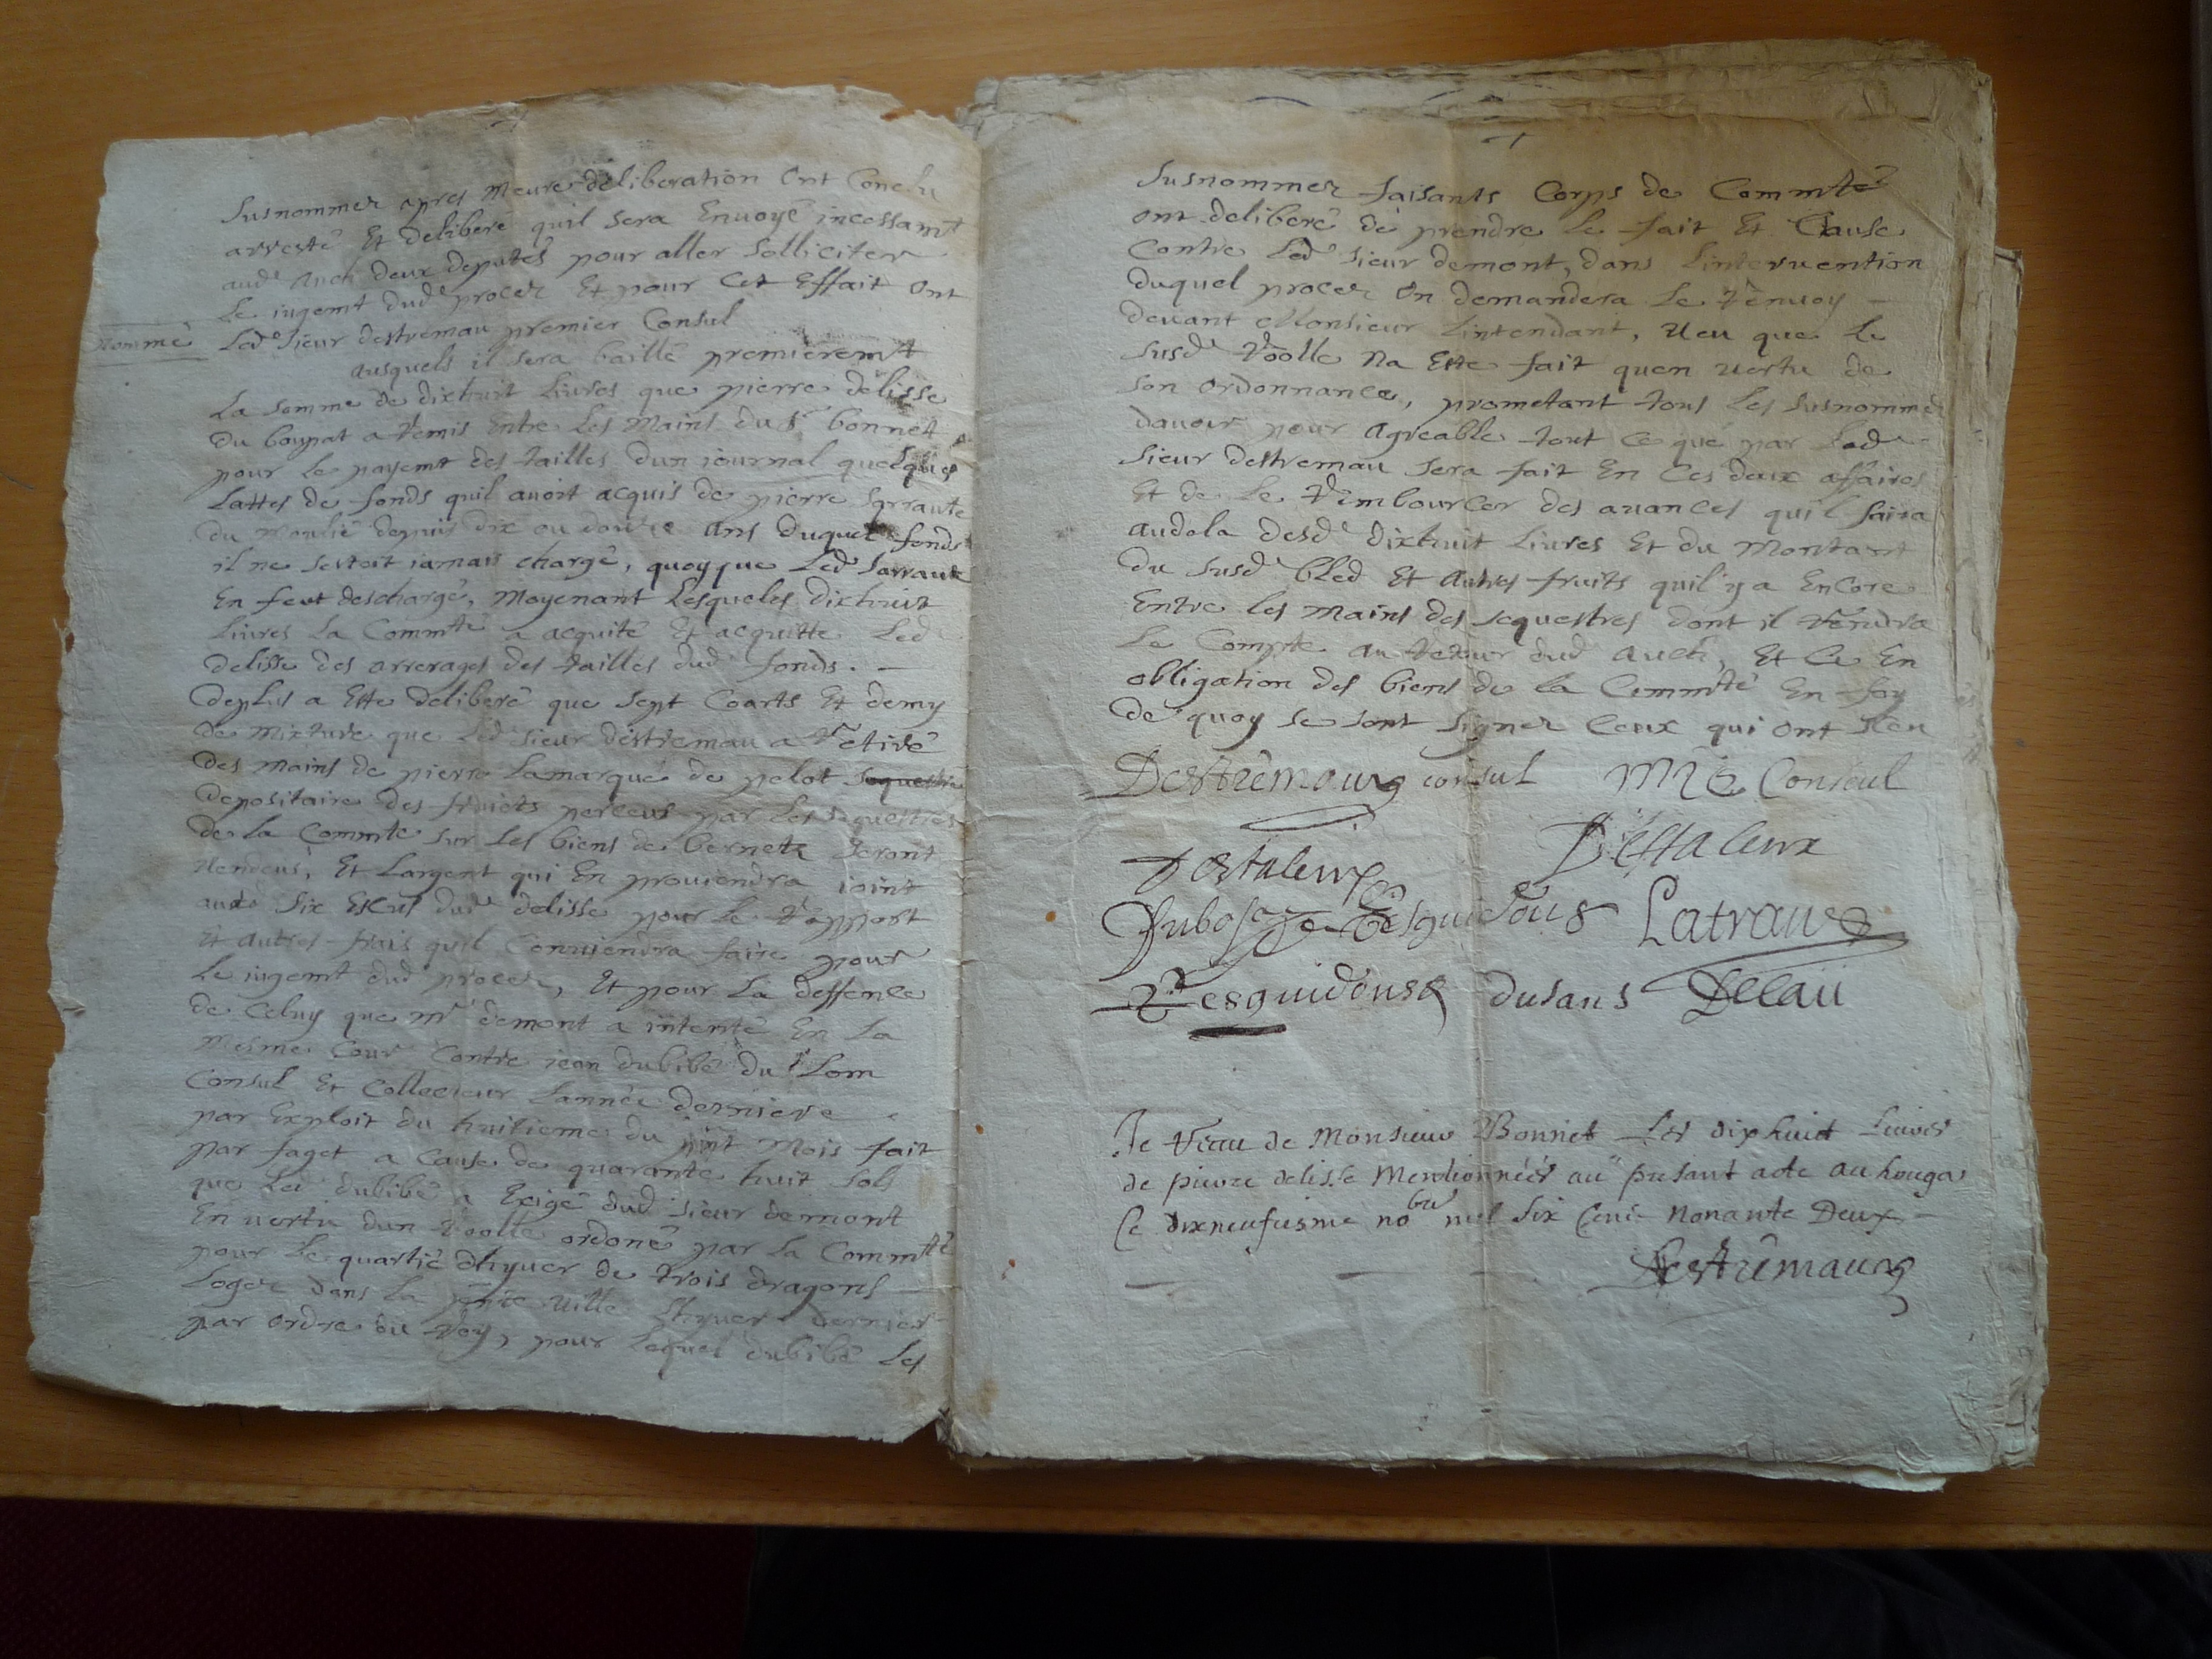 Susnommez apres meure deliberation ont Conclu
arresté Et deliberé quil sera Envoyé incessamt
aud Auch deux deputés pour aller solliciter
le iugemt dud procez Et pour Cet Effait ont
nommé
Led sieur destremau premier Consul
ausquels il sera baillé premieremt
La somme de dixhuit Livres que pierre delisse
du boupat a remis Entre les mains du sr bonnet
pour le payemt des tailles dun iournal quelques
Lattes de fonds quil avoit acquis de pierre sarraute
du depuis dix ou douze ans duquel fonds
il ne sestoit iamais chargé, quoyque Led sarraute
En feut deschargé, Moyenant Lesqueles dixhuit
Livres La Commté a acquité Et acquitte Led
delisse des arrerages des tailles dud fonds. —
deplus a Esté deliberé que sept Coarts Et demy
de mixture que Led sieur destremau a retiré
des mains de pierre Lamarque de pelot sequestre
depositaire des fruicts perceus par Les sequestres
de la Commté sur Les biens de bernetz seront
vendeus, Et Largent qui En proviendra ioint
aud six Escus dud delisse pour le rapport
Et autres frais quil Conviendra faire pour
Le iugemt dud procez, Et pour La deffence
de Celuy que mr demont a intenté En La
mesme Cour Contre iean dubibé du Lom
Consul Et Collecteur Lannée derniere
par Exploit du huitieme du pnt Mois fait
par faget a Cause de quarante huit sols
que Led dubibé a Exigé dud sieur demont
En vertu dun roolle ordoné par La Commté
pour Le quartié dhyver de trois dragons
Logez dans La pnte ville Lhyver dernier
par ordre du roy, pour Lequel dubibé Les
Susnommez faisants Corps de Commté
ont deliberé de prendre Le fait Et Cause
Contre Led sieur demont, dans Lintervention
duquel procez on demandera Le renvoy —
devant Monsieur Lintendant, veu que Le
susd roolle na Esté fait quen vertu de
son ordonnance, prometant tous Les susnommez
davoir pour agreable tout ce que par Led
sieur destremau sera fait En Ces deux affaires
Et de Le rembourcer des avances quil faira
audela desd dixhuit Livres Et du Montant
du susd bled Et autres fruits quil y a Encore
Entre les mains des sequestres dont il rendra
Le Compte au retour dud auch, Et Ce En
obligation des biens de la Commté En foy
de quoy se sont signez Ceux qui ont sceu
Destrêmau consul Consul
Dostaleux D'estaleux
Dubosc Lesguidous Latrau
Lesguidous dusans Delaü
Je recu de Monsieur Bonnet Les dix huict Livres
de pierre delisse Mentionnées au presant acte au houga
Ce dixneufiesme nobre mil six Cens nonante Deux —
Destrêmau